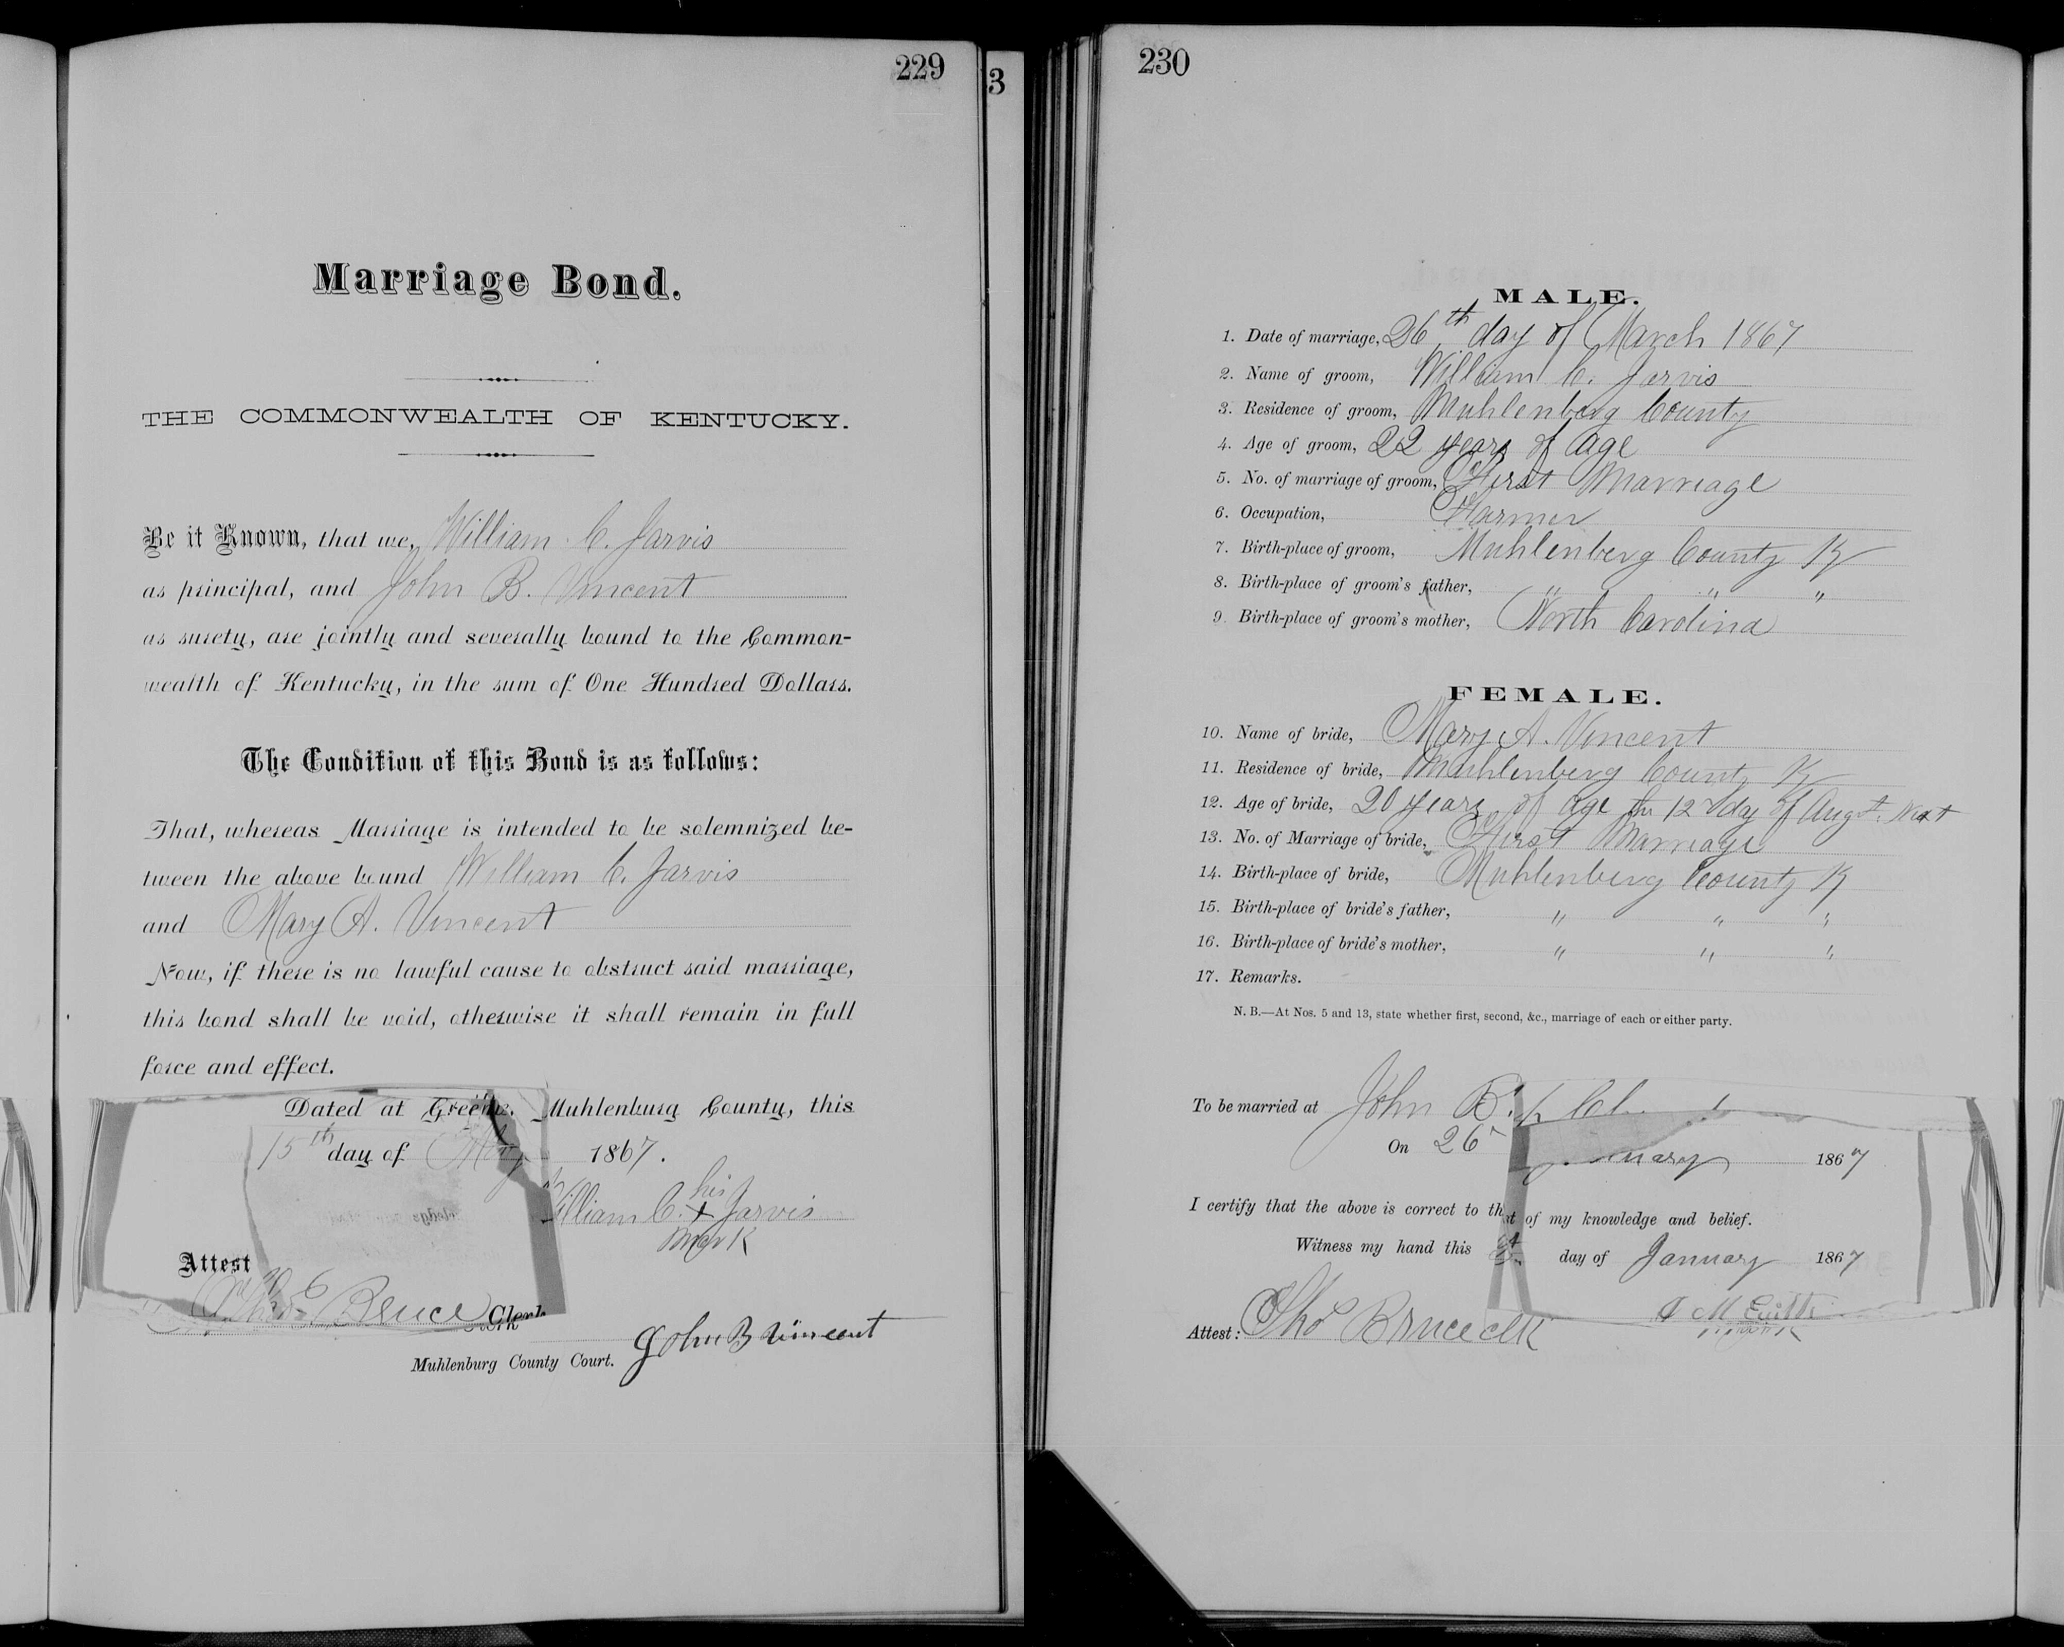 229
3
Marriage Bond.
THE COMMONWEALTH OF KENTUCKY.
Be it Known, that we, William C. Jarvis
as principal, and John B. Vincent
as surety, are jointly and severally bound to the Common-
wealth of Kentucky, in the sum of One Hundred Dollars.
The Condition of this Bond is as follows:
That, whereas Marriage is intended to be solemnized be-
tween the above bound William C. Jarvis
and Mary A. Vincent
Now, if there is no lawful cause to obstruct said marriage,
this bond shall be void, otherwise it shall remain in full
force and effect.
Dated at Muhlenburg County, this
15th day of 1867.
William C. his X mark Jarvis
Attest
Thos Bruce Clerk
John B Vincent
Muhlenburg County Court.
230
MALE.
1. Date of marriage, 26th day of March 1867
2. Name of groom, William C. Jarvis
3. Residence of groom, Muhlenberg County
4. Age of groom, 22 years of age
5. No. of marriage of groom, First Marriage
6. Occupation, Farmer
7. Birth-place of groom, Muhlenberg County Ky
8. Birth-place of groom's father, " " "
9. Birth-place of groom's mother, North Carolina
FEMALE.
10. Name of bride, Mary A. Vincent
11. Residence of bride, Muhlenberg County Ky
12. Age of bride, 20 years of age the 12 day of Augst. Next
13. No. of Marriage of bride, First Marriage
14. Birth-place of bride, Muhlenberg County Ky
15. Birth-place of bride's father, " " "
16. Birth-place of bride's mother, " " "
17. Remarks.
N. B.—At Nos. 5 and 13, state whether first, second, &c., marriage of each or either party.
To be married at John B.
On 26 1867
I certify that the above is correct to of my knowledge and belief.
Witness my hand this day of January 1867
Attest: Thos Bruce clk